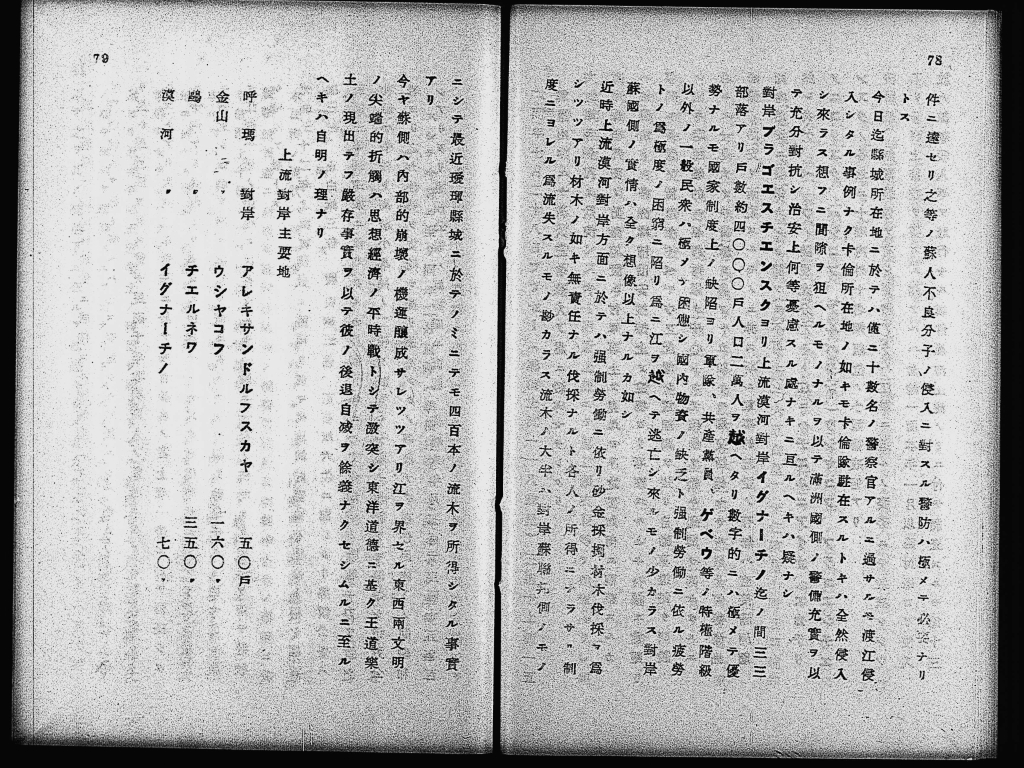 78
件ニ達セリ之等ノ蘇人不良分子ノ侵入ニ對スル警防ハ極メテ必要ナリ
トス
今日迄縣城所在地ニ於テハ僅ニ十數名ノ警察官アルニ過サルモ渡江侵
入シタル事例ナク卡倫所在地ノ如キモ卡倫隊駐在スルトキハ全然侵入
シ來ラス想フニ間隙ヲ狙ヘルモノナルヲ以テ滿洲國側ノ警備充實ヲ以
テ充分對抗シ治安上何等憂慮スル處ナキニ亘ルヘキハ疑ナシ
對岸ブラゴエスチエンスクヨリ上流漠河對岸イグナーチノ迄ノ間三三
部落アリ戶數約四〇〇〇戶人口二萬人ヲ越ヘタリ數字的ニハ極メテ優
勢ナルモ國家制度上ノ缺陷ヨリ軍隊、共產黨員、ゲペウ等ノ特權階級
以外ノ一般民衆ハ極メテ困憊シ國內物資ノ缺乏ト强制勞働ニ依ル疲勞
トノ爲極度ノ困窮ニ陷リ爲ニ江ヲ越ヘテ逃亡シ來ルモノ少カラス對岸
蘇國側ノ實情ハ全ク想像以上ナルカ如シ
近時上流漠河對岸方面ニ於テハ强制勞働ニ依リ砂金採掘材木伐採ヲ爲
シツツアリ材木ノ如キ無責任ナル伐採ナルト各人ノ所得ニアラサル制
度ニヨレル爲流失スルモノ尠カラス流木ノ大半ハ對岸蘇聯兀側ノモノ
79
ニシテ最近璦琿縣城ニ於テノミニテモ四百本ノ流木ヲ所得シタル事實
アリ
今ヤ蘇側ハ內部的崩壞ノ機運釀成サレツツアリ江ヲ界セル東西兩文明
ノ尖端的折觸ハ思想經濟ノ平時戰トシテ激突シ東洋道德ニ基ク王道樂
土ノ現出テフ嚴存事實ヲ以テ彼ノ後退自滅ヲ餘義ナクセシムルニ至ル
ヘキハ自明ノ理ナリ
上流對岸主要地
呼瑪對岸 アレキサンドルフスカヤ 五〇戶
金山 〃 ウシヤコフ 一六〇〃
鷗 〃 チエルネワ 三五〇〃
漠河 〃 イグナーチノ 七〇〃